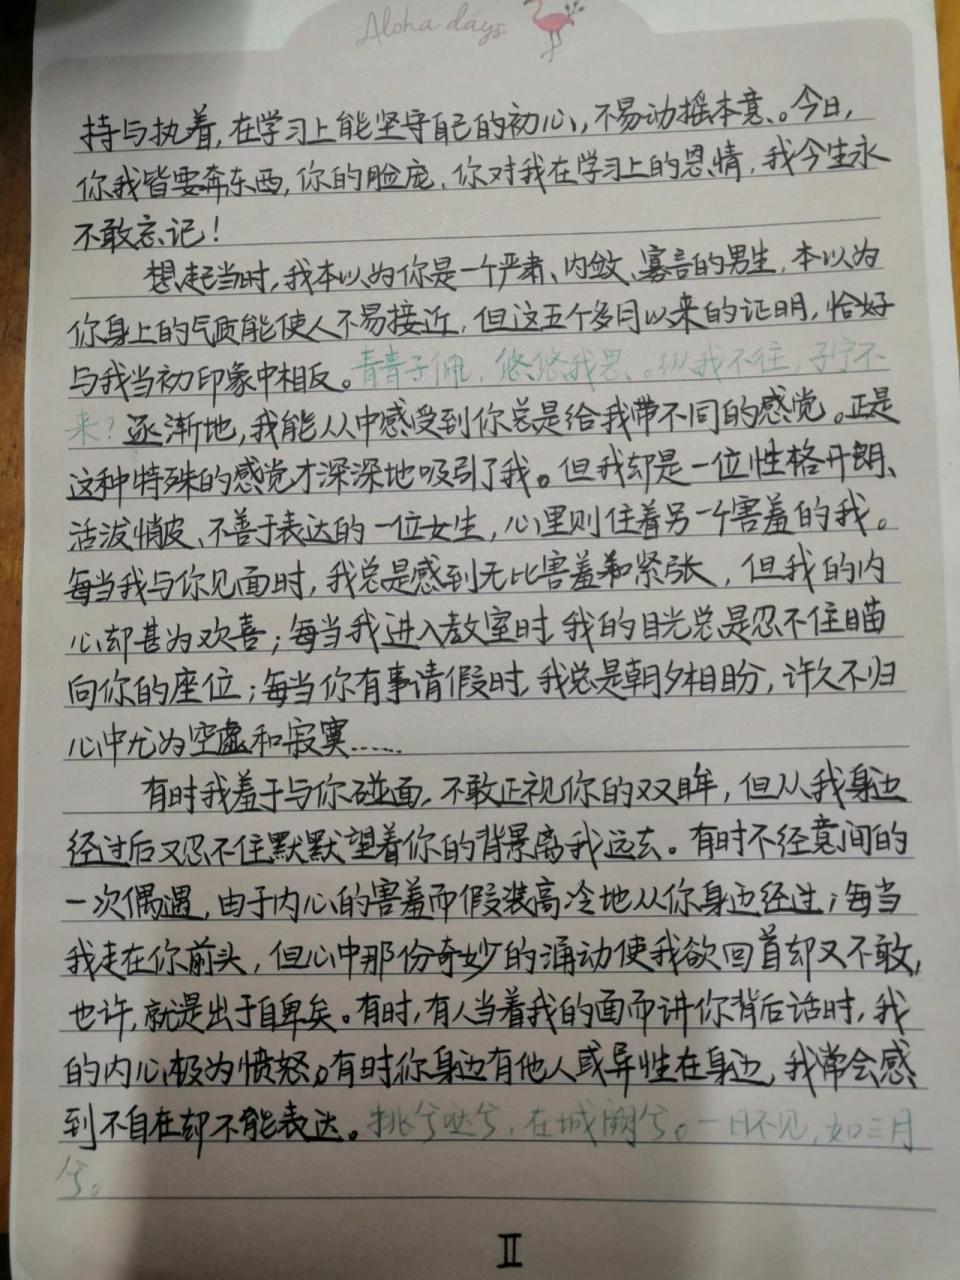 Aloha days
持与执着,在学习上能坚守自己的初心,不易动摇本意。今日,
你我皆要奔东西,你的脸庞、你对我在学习上的恩情,我今生永
不敢忘记!
想起当时,我本以为你是一个严肃、内敛、寡言的男生,本以为
你身上的气质能使人不易接近,但这五个多月以来的证明,恰好
与我当初印象中相反。青青子佩,悠悠我思。纵我不往,子宁不
来?逐渐地,我能从中感受到你总是给我带不同的感觉。正是
这种特殊的感觉才深深地吸引了我。但我却是一位性格开朗、
活泼悄皮、不善于表达的一位女生,心里则住着另一个害羞的我。
每当我与你见面时,我总是感到无比害羞和紧张,但我的内
心却甚为欢喜;每当我进入教室时,我的目光总是忍不住瞄
向你的座位;每当你有事请假时,我总是朝夕相盼,许久不归
心中尤为空虚和寂寞……
有时我羞于与你碰面,不敢正视你的双眸,但从我身边
经过后又忍不住默默望着你的背景离我远去。有时不经意间的
一次偶遇,由于内心的害羞而假装高冷地从你身边经过;每当
我走在你前头,但心中那份奇妙的涌动使我欲回首却又不敢,
也许,就是出于自卑矣。有时,有人当着我的面而讲你背后话时,我
的内心极为愤怒。有时你身边有他人或异性在身边,我常会感
到不自在却不能表达。挑兮达兮,在城阙兮。一日不见,如三月
兮。
II